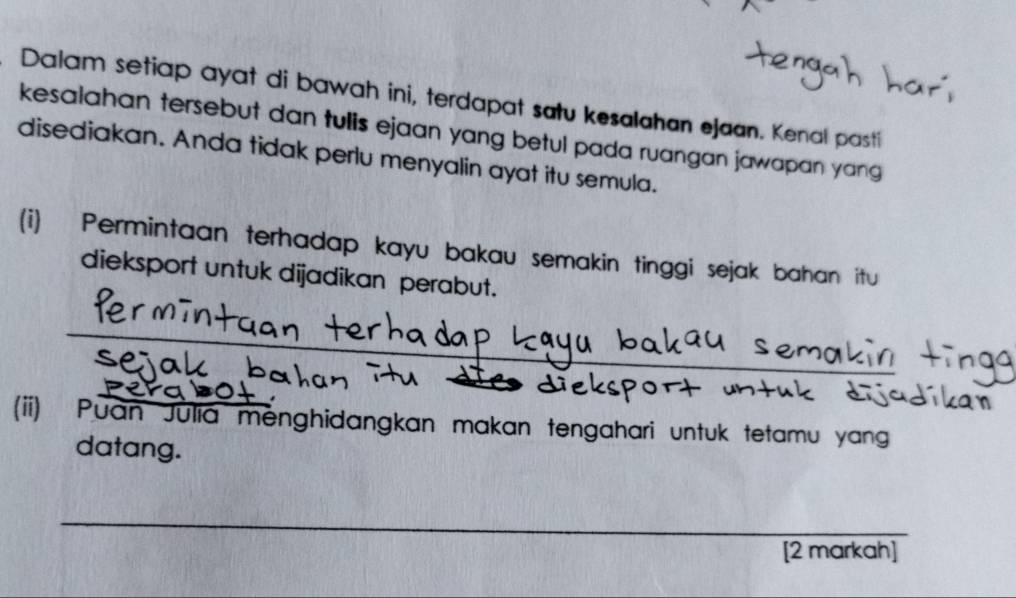 tengah hari
Dalam setiap ayat di bawah ini, terdapat satu kesalahan ejaan. Kenal pasti
kesalahan tersebut dan tulis ejaan yang betul pada ruangan jawapan yang
disediakan. Anda tidak perlu menyalin ayat itu semula.
(i) Permintaan terhadap kayu bakau semakin tinggi sejak bahan itu
dieksport untuk dijadikan perabut.
Permintaan terhadap kayu bakau semakin tingg
sejak bahan itu dieksport untuk dijadikan
perabot.
(ii) Puan Julia menghidangkan makan tengahari untuk tetamu yang
datang.
[2 markah]